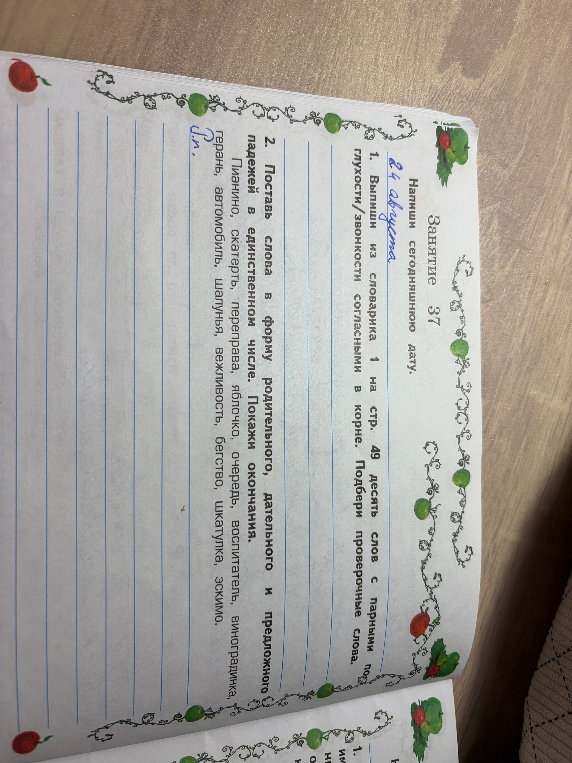 Занятие 37
Напиши сегодняшнюю дату.
24 августа
1. Выпиши из словарика 1 на стр. 49 десять слов с парными по
глухости/звонкости согласными в корне. Подбери проверочные слова.
2. Поставь слова в форму родительного, дательного и предложного
падежей в единственном числе. Покажи окончания.
Пианино, скатерть, переправа, яблочко, очередь, воспитатель, виноградинка,
герань, автомобиль, шалунья, вежливость, бегство, шкатулка, эскимо.
1.